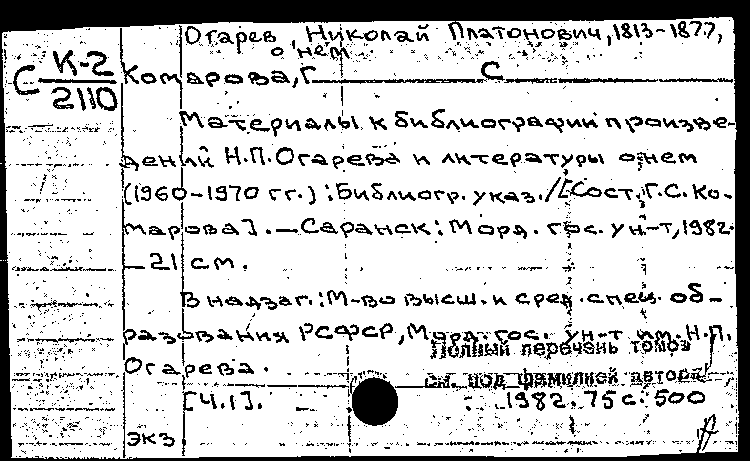 Огарев, Николай Платонович, 1813-1877,
о нем
С К-2/2110
Комарова, Г. С
Материалы к библиографии произве-
дений Н.П.Огарева и литературы о нем
(1960-1970 гг.): Библиогр. указ. /[Сост. Г.С. Ко-
марова]. — Саранск: Морд. гос. ун-т, 1982
— 21 см.
В надзаг.: М-во высш. и сред. спец. об-
разования РСФСР, Морд. гос. ун-т им. Н.П.
Огарева.
Полный перечень томов
см. под фамилией автора
[Ч.1]. — 1982. 75 с. 500
экз.